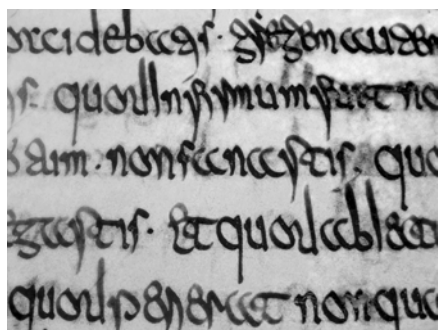 occidebatis · gregem autem
s · quod infirmum fuit no
non sanastis · quo
gastis · Et quod abiect
quod perierat non que